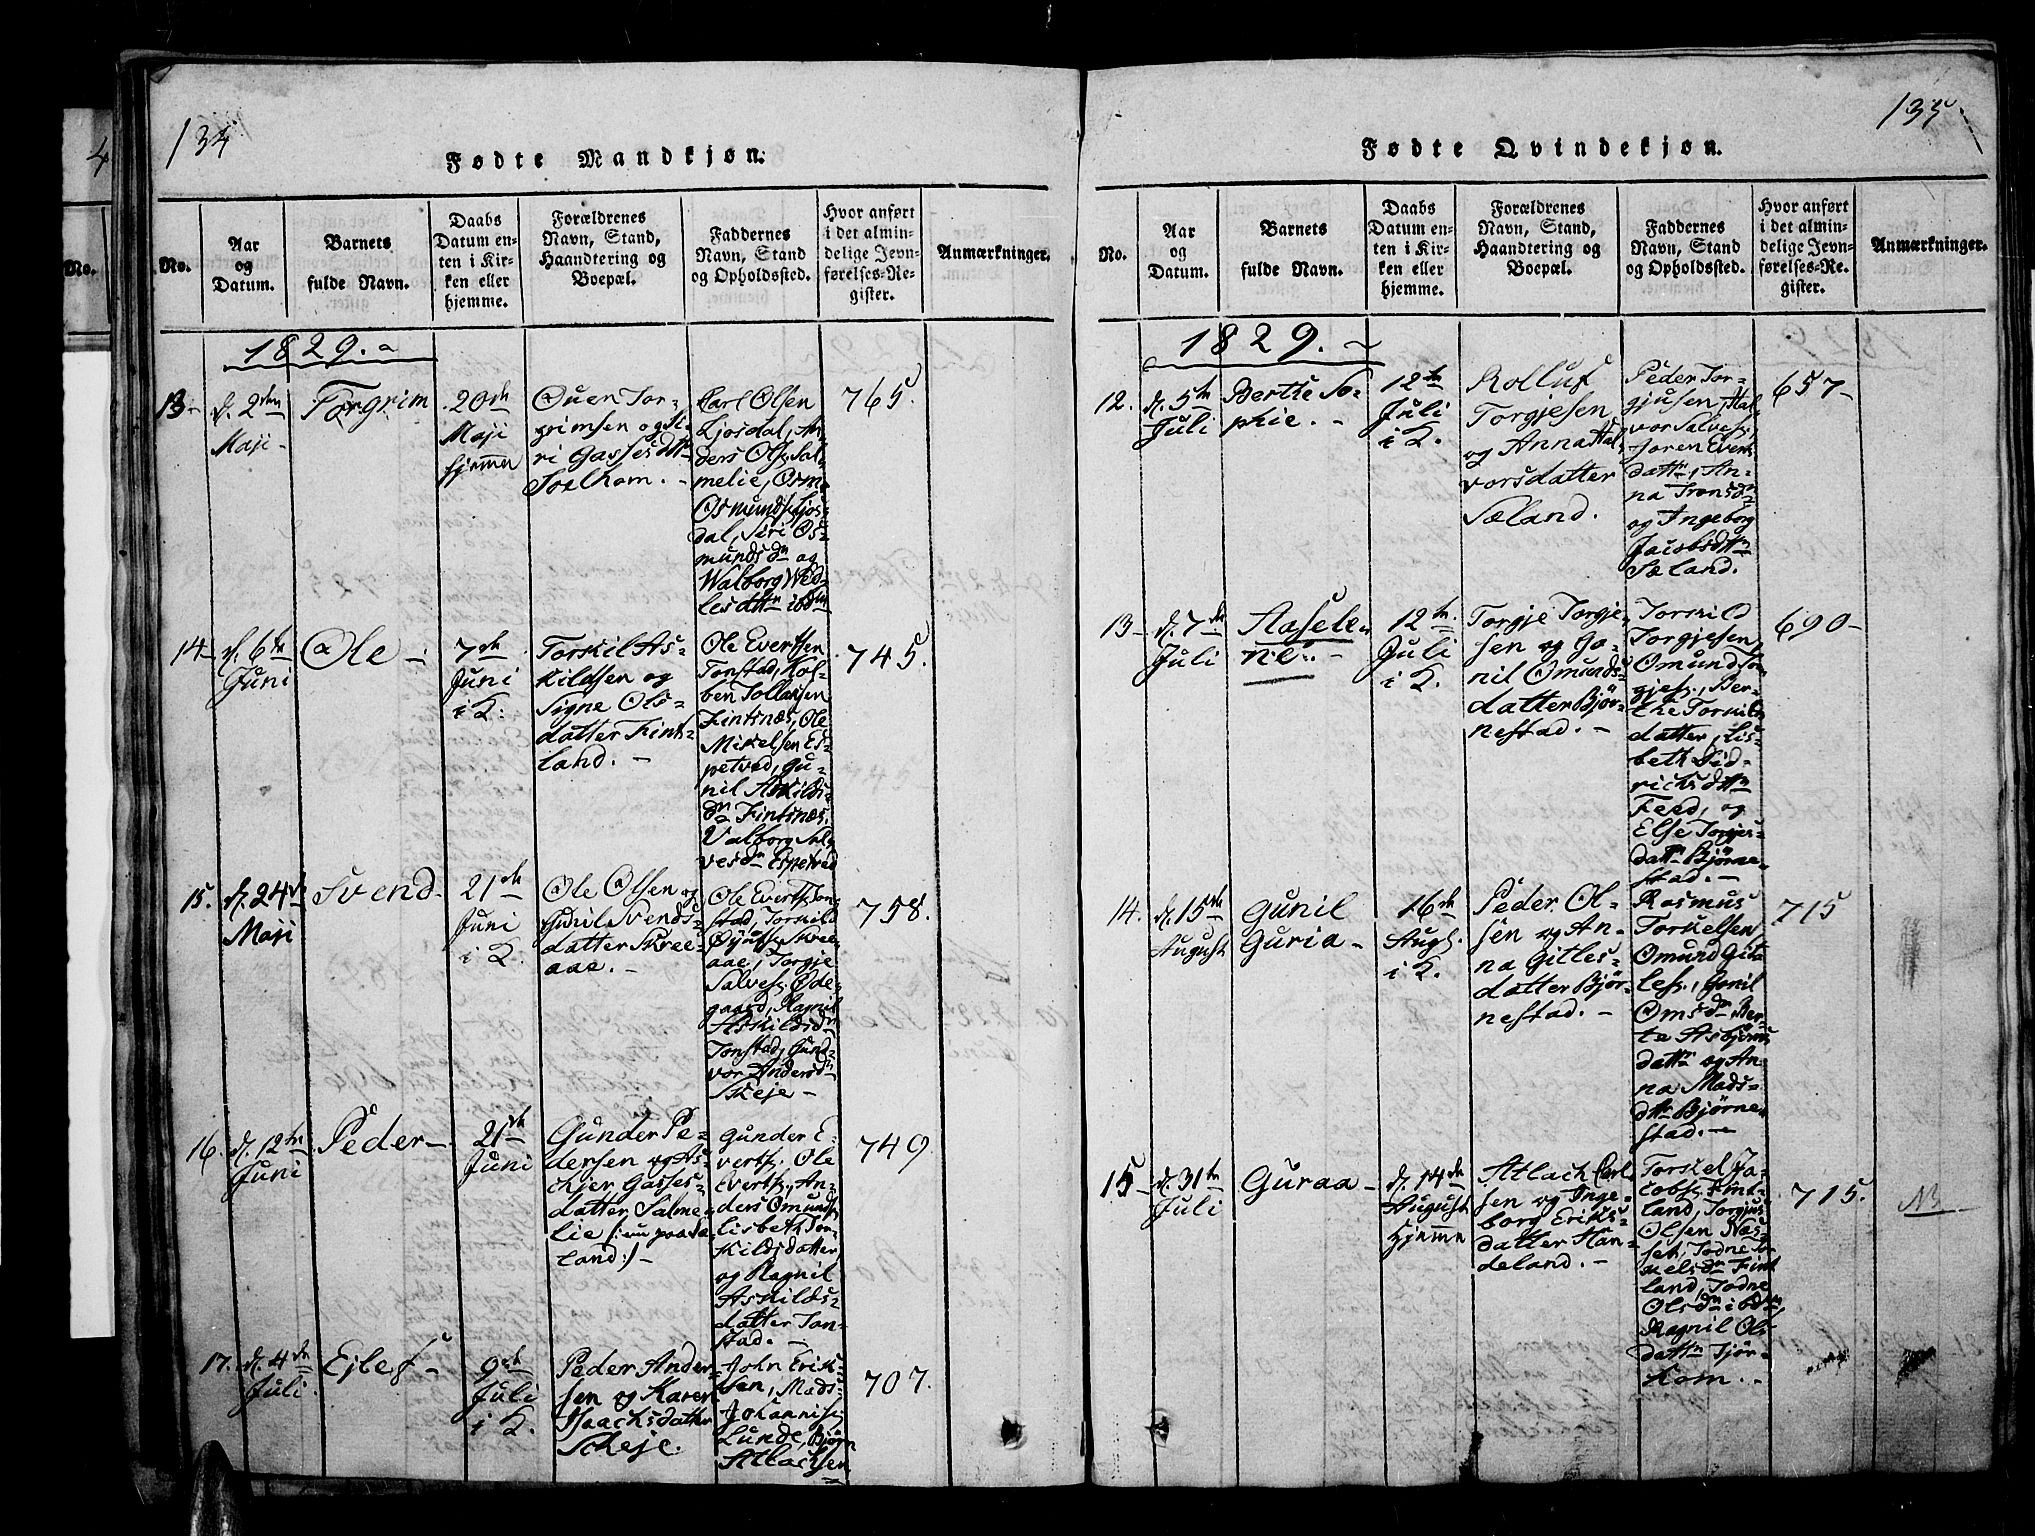 134
Fødte Mandkjøn.
No.
Aar
og
Datum.
Barnets
fulde Navn.
Daabs
Datum en-
ten i Kir-
ken eller
hjemme.
Forældrenes
Navn, Stand,
Haandtering og
Boepæl.
Faddernes
Navn, Stand
og Opholdssted.
Hvor anført
i det almin-
delige Jevn-
førelses-Re-
gister.
Anmærkninger.
1829.
13-
d. 2den
Maji-
Torgrim
20de
Maji
hjemme
Ouen Tor-
grimsen og Si-
ri Gassesdttr
Soelhom. -
Carl Olsen
Ljosdal, An-
ders Ols. Sal-
melie, Orm
Osmunds. Ljos-
dal, Siri Os-
mundsdn og
Walborg Wed-
lesdttn ibdm
765.
14-
d. 6te
Juni
Ole -
7de
Juni
i K.
Torkil As-
kildsen og
Signe Ols-
datter Fints-
land. -
Ole Evertsen
Tonstad, Kol-
ben Tollagsen
Fintsnæs, Ole
Mikelsen Es-
petved, Gu-
nil Askilds-
dn Fintsnæs,
Valborg Sal-
vesdn Espetved
745.
15.
d. 24de
Maji
Svend.
21de
Juni
i K.
Ole Olsen og
Gunil Svends-
datter Skree-
aae. -
Ole Everts. Ton-
stad, Torkild
Øjulfs. Skree-
aae, Torgje
Salves. Øde-
gaard, Ragnil
Askildsdn
Tonstad, Gund-
vor Andersdn
Skeje -
758.
16.
d. 12te
Juni
Peder-
21de
Juni
Gunder Pe-
dersen og As-
kjer Gasses-
datter Salme-
lie /: nu paa Sæ-
land:/ -
Gunder E-
verts. Ole
Everts., An-
ders Omunds.
Lisbeth Tor-
kildsdatter,
og Ragnil
Askilds-
datter Ton-
stad. -
749
17.
d. 4de
Juli.
Ejlef -
9de
Juli
i K.
Peder Ander-
sen og Karen
Isaachsdatter
Scheje.
John Erik-
sen, Mads
Johannis.
Lunde, Bjørn
Atlachsen
707.
135
Fødte Qvindekjøn.
No.
Aar
og
Datum.
Barnets
fulde Navn.
Daabs
Datum en-
ten i Kir-
ken eller
hjemme.
Forældrenes
Navn, Stand,
Haandtering og
Boepæl.
Faddernes
Navn, Stand
og Opholdssted.
Hvor anført
i det almin-
delige Jevn-
førelses-Re-
gister.
Anmærkninger.
1829.
12.
d. 5te
Juli
Berthe So-
phie. -
12te
Juli
i K.
Rolluf
Torgjesen
og Anna Hal-
vorsdatter
Sæland.
Peder Tor-
gjusen, Hal-
vor Salves.
Joren Everts-
dattr, An-
na Tronsdn
og Ingeborg
Jacobsdttn
Sæland.
657-
13-
d. 7de
Juli
Aasele-
ne. -
12te
Juli
i K.
Torgje Torgje-
sen og Go-
nil Omunds-
datter Bjør-
nestad. -
Torkild
Torgjesen,
Omund Tor-
gjes., Ber-
the Torkils-
datter, Lis-
beth Did-
richsdttn
Feed, og
Else Torges-
dattr Bjørne-
stad. -
690-
14.
d. 15de
August
Gunil
Guria -
16de
Augs.
i K.
Peder Ol-
sen og An-
na Gitles-
datter Bjør-
nestad. -
Rasmus
Torkelsen,
Omund Git-
les., Gonil
Omsdn, Ber-
te Asbjørns-
dattr og An-
na Mads-
dttr Bjørne-
stad. -
715
15-
d. 31te
Juli
Guraa -
d. 14de
August
hjemme
Atlach Carl-
sen og Inge-
borg Eriks-
datter Han-
deland. -
Torkel Ja-
cobs. Fint-
land, Torgjus
Olsen Næs-
set, Todne To-
melsdn Fint-
land, Todne
Olsdn ibdm,
Ragnil Ols-
dattr Tjør-
hom. -
715.
NB